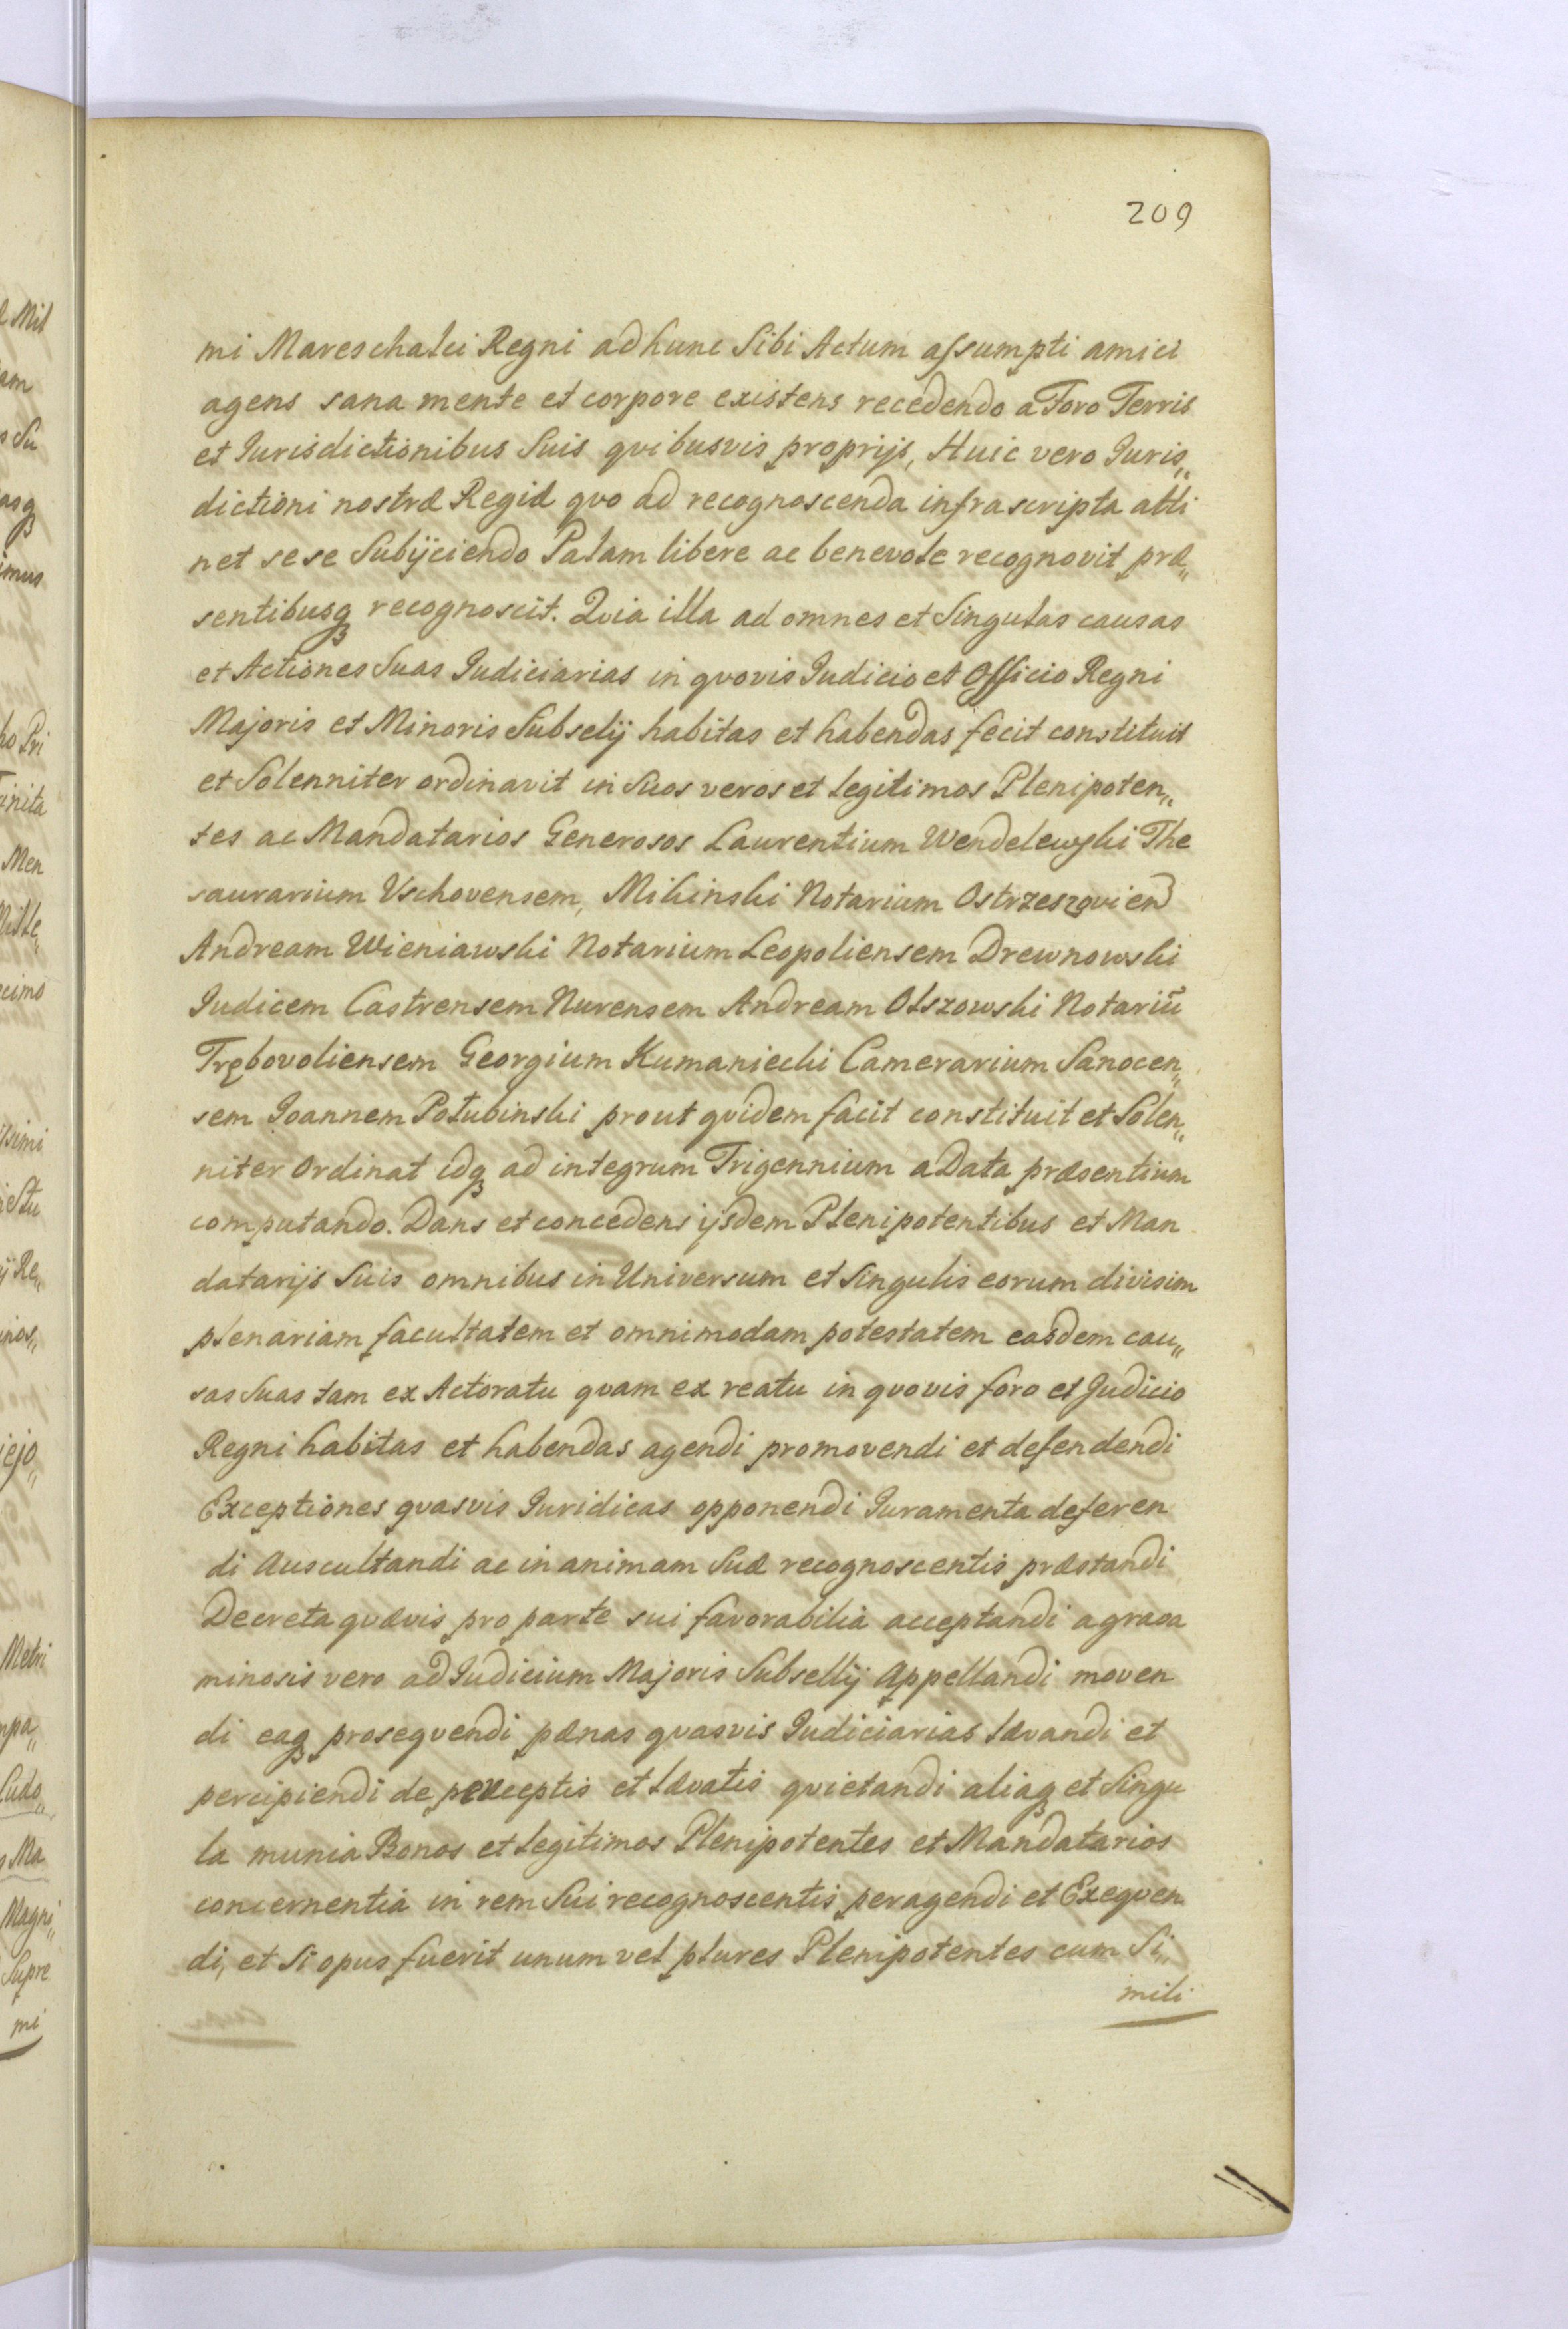 209
mi Mareschalci Regni ad hunc Sibi Actum assumpti amici
agens sana mente et corpore existens recedendo a Foro Terris
et Iurisdictionibus Suis qvibusvis proprijs, Huic vero Iuris„
dictioni nostræ Regiæ qvo ad recognoscenda infrascripta atti
net sese Subijciendo Palam libere ac benevole recognovit præ„
sentibusq recognoscit. Qvia illa ad omnes et Singulas causas
et Actiones Suas Iudiciarias in qvovis Iudicio et Officio Regni
Majoris et Minoris Subselij habitas et habendas fecit constituit
et Solenniter ordinavit in Suos veros et legitimos Plenipoten„
tes ac Mandatarios Generosos Laurentium Wendelewski The
saurarium Vschovensem, Mikinski Notarium Ostrzeszovien
Andream Wieniawski Notarium Leopoliensem Drewnowski
Iudicem Castrensem Nurensem Andream Olszowski Notariũ
Trębovoliensem Georgium Kumaniecki Camerarium Sanocen„
sem Ioannem Potubinski prout qvidem facit constituit et Solen„
niter Ordinat idq ad integrum Trigennium a Data præsentium
computando. Dans et concedens ijsdem Plenipotentibus et Man
datarijs Suis omnibus in Universum et Singulis eorum divisim
plenariam facultatem et omnimodam potestatem easdem cau„
sas Suas tam ex Actoratu qvam ex reatu in qvovis foro et Iudicio
Regni habitas et habendas agendi promovendi et defendendi
Exceptiones qvasvis Iuridicas opponendi Iuramenta deferen
di Auscultandi ac in animam Suæ recognoscentis præstandi
Decreta qvævis pro parte sui favorabilia acceptandi a grava
minosis vero ad Iudicium Majoris Subsellij Appellandi moven
di eaq proseqvendi pænas qvasvis Iudiciarias lævandi et
percipiendi de perceptis et lævatis qvietandi aliaq et Singu
la munia Bonos et legitimos Plenipotentes et Mandatarios
concernentia in rem Sui recognoscentis peragendi et Exeqven
di, et Si opus fuerit unum vel plures Plenipotentes cum Si„
mili